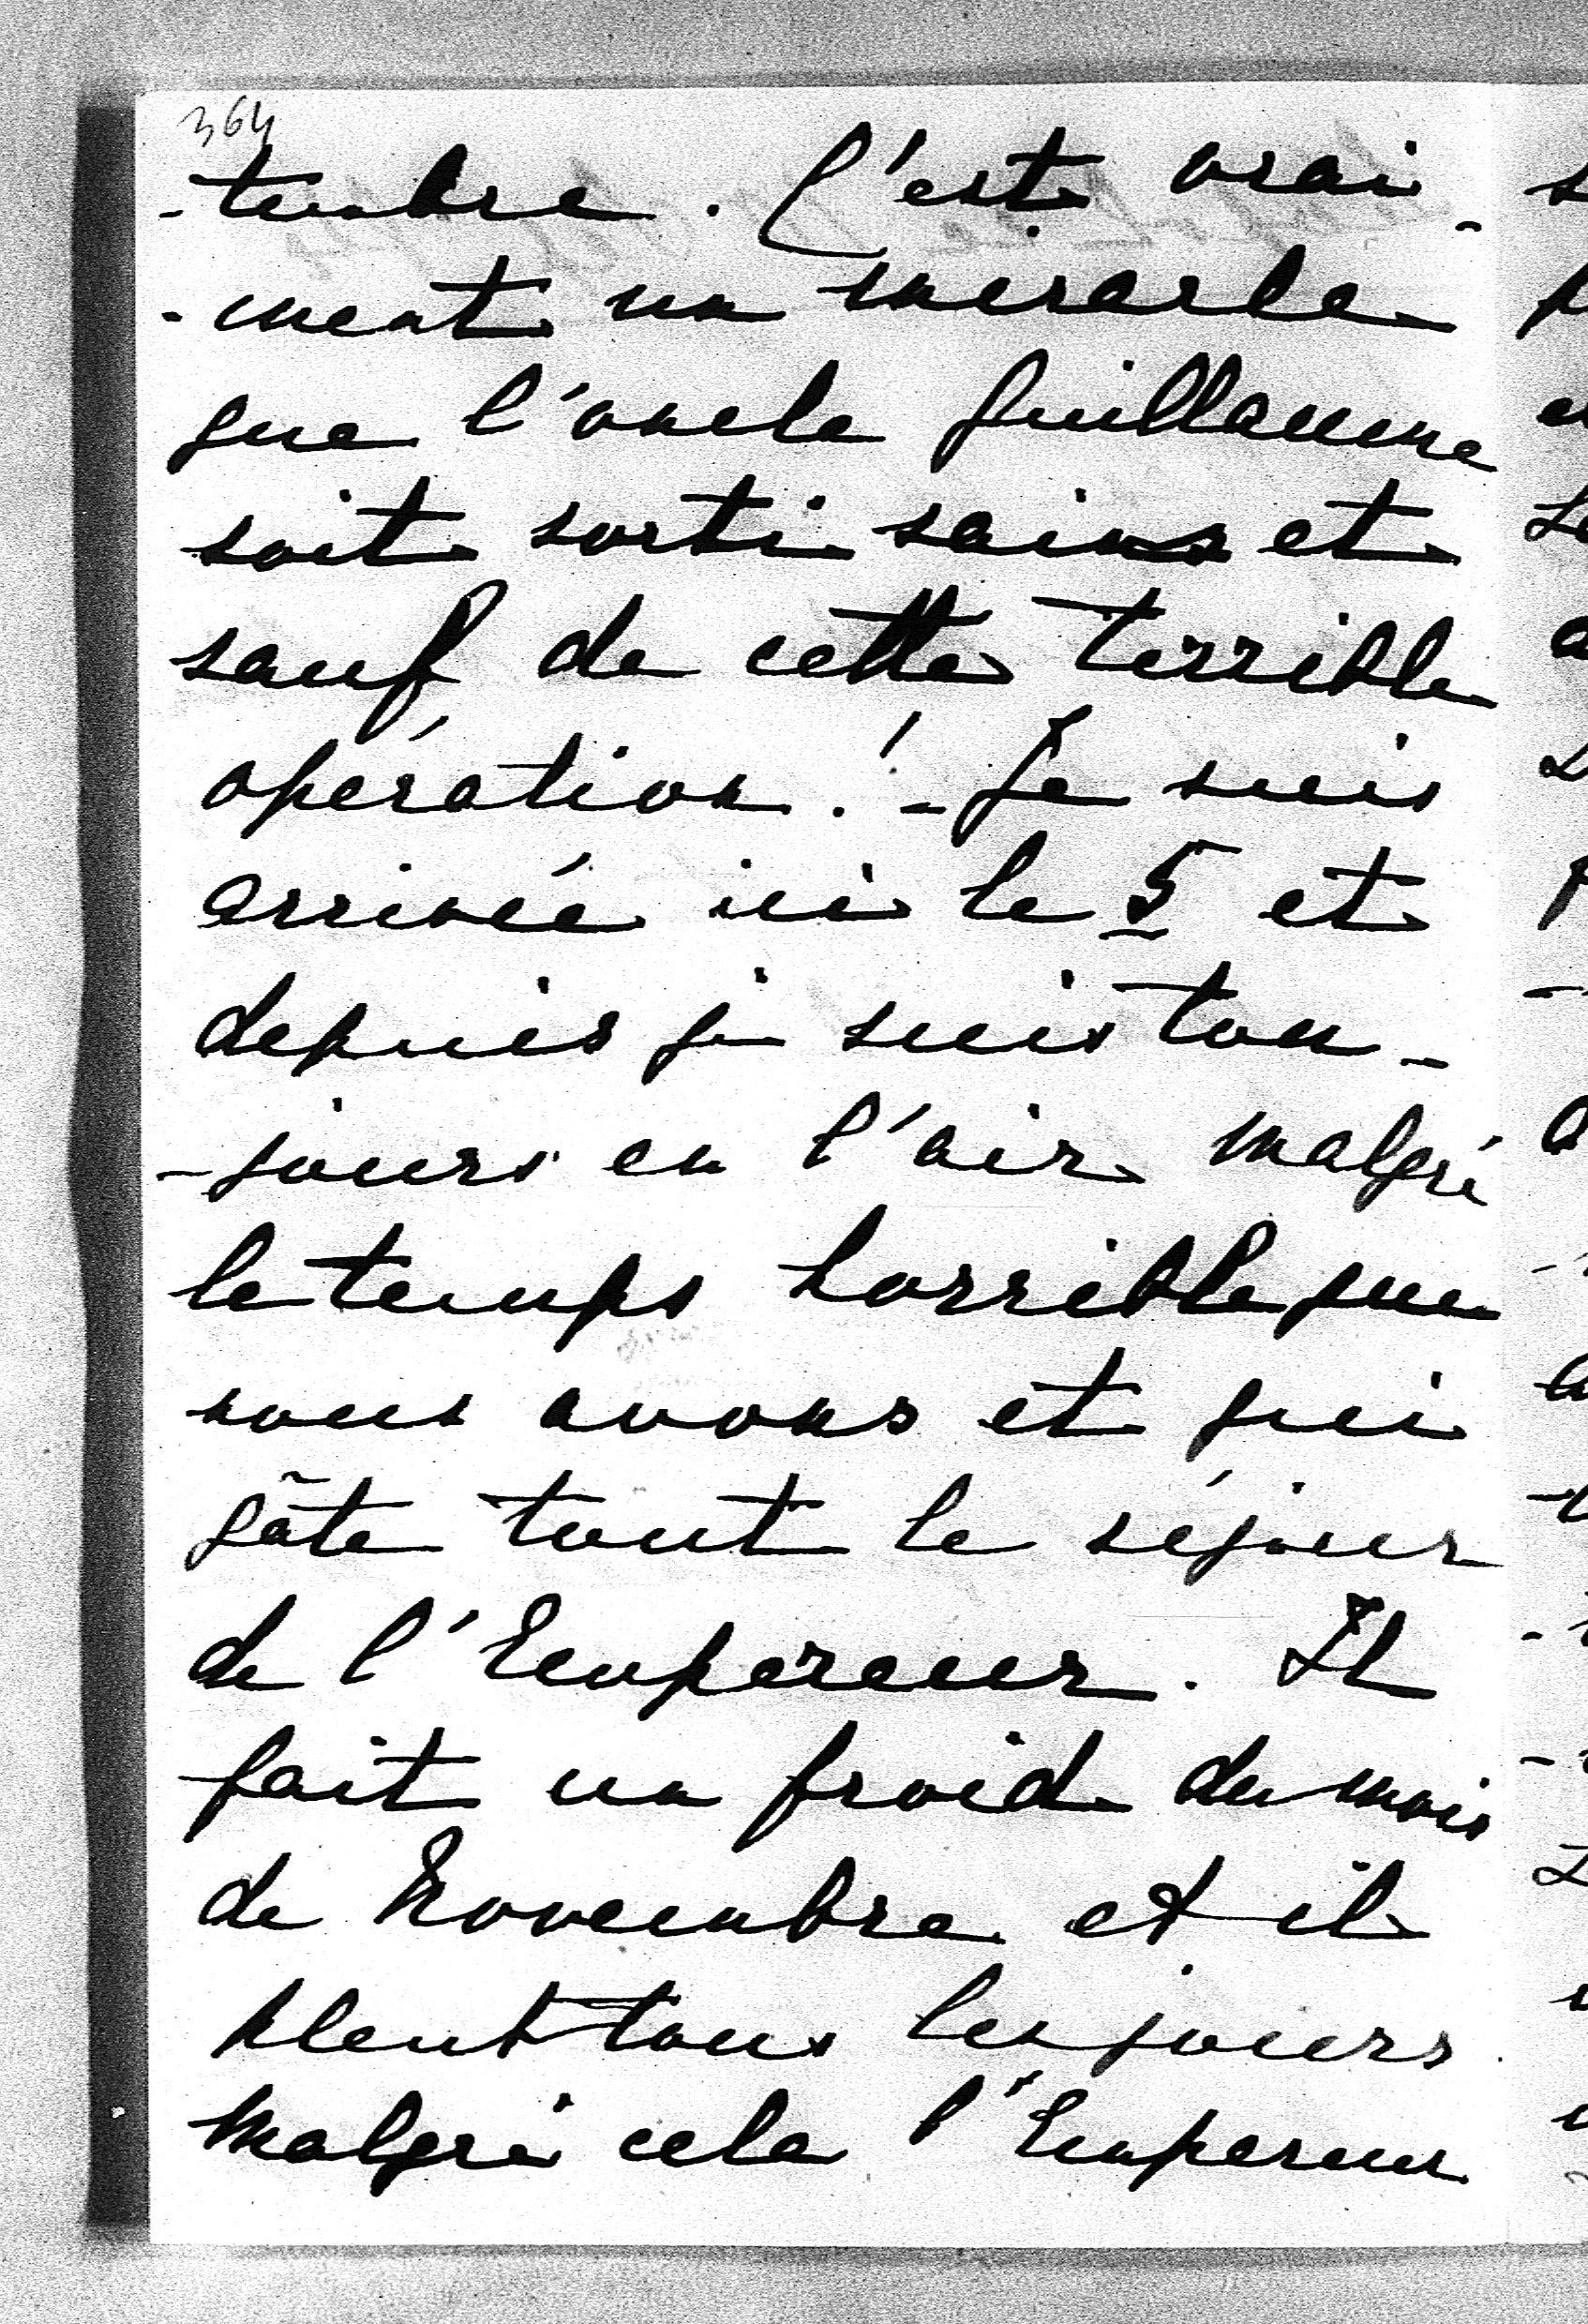 364
-tembre. C'est vrai-
-ment un miracle
que l'oncle Guillaume
soit sorti sains et
sauf de cette terrible
opération! - Je suis
arrivée ici le 5 et
depuis je suis tou-
-jours en l'air malgré
le temps horrible que
nous avons et qui
gâte tout le séjour
de l'Empereur. Il
fait un froid du mois
de Novembre et il
pleut tous les jours
malgré cela l'Empereur